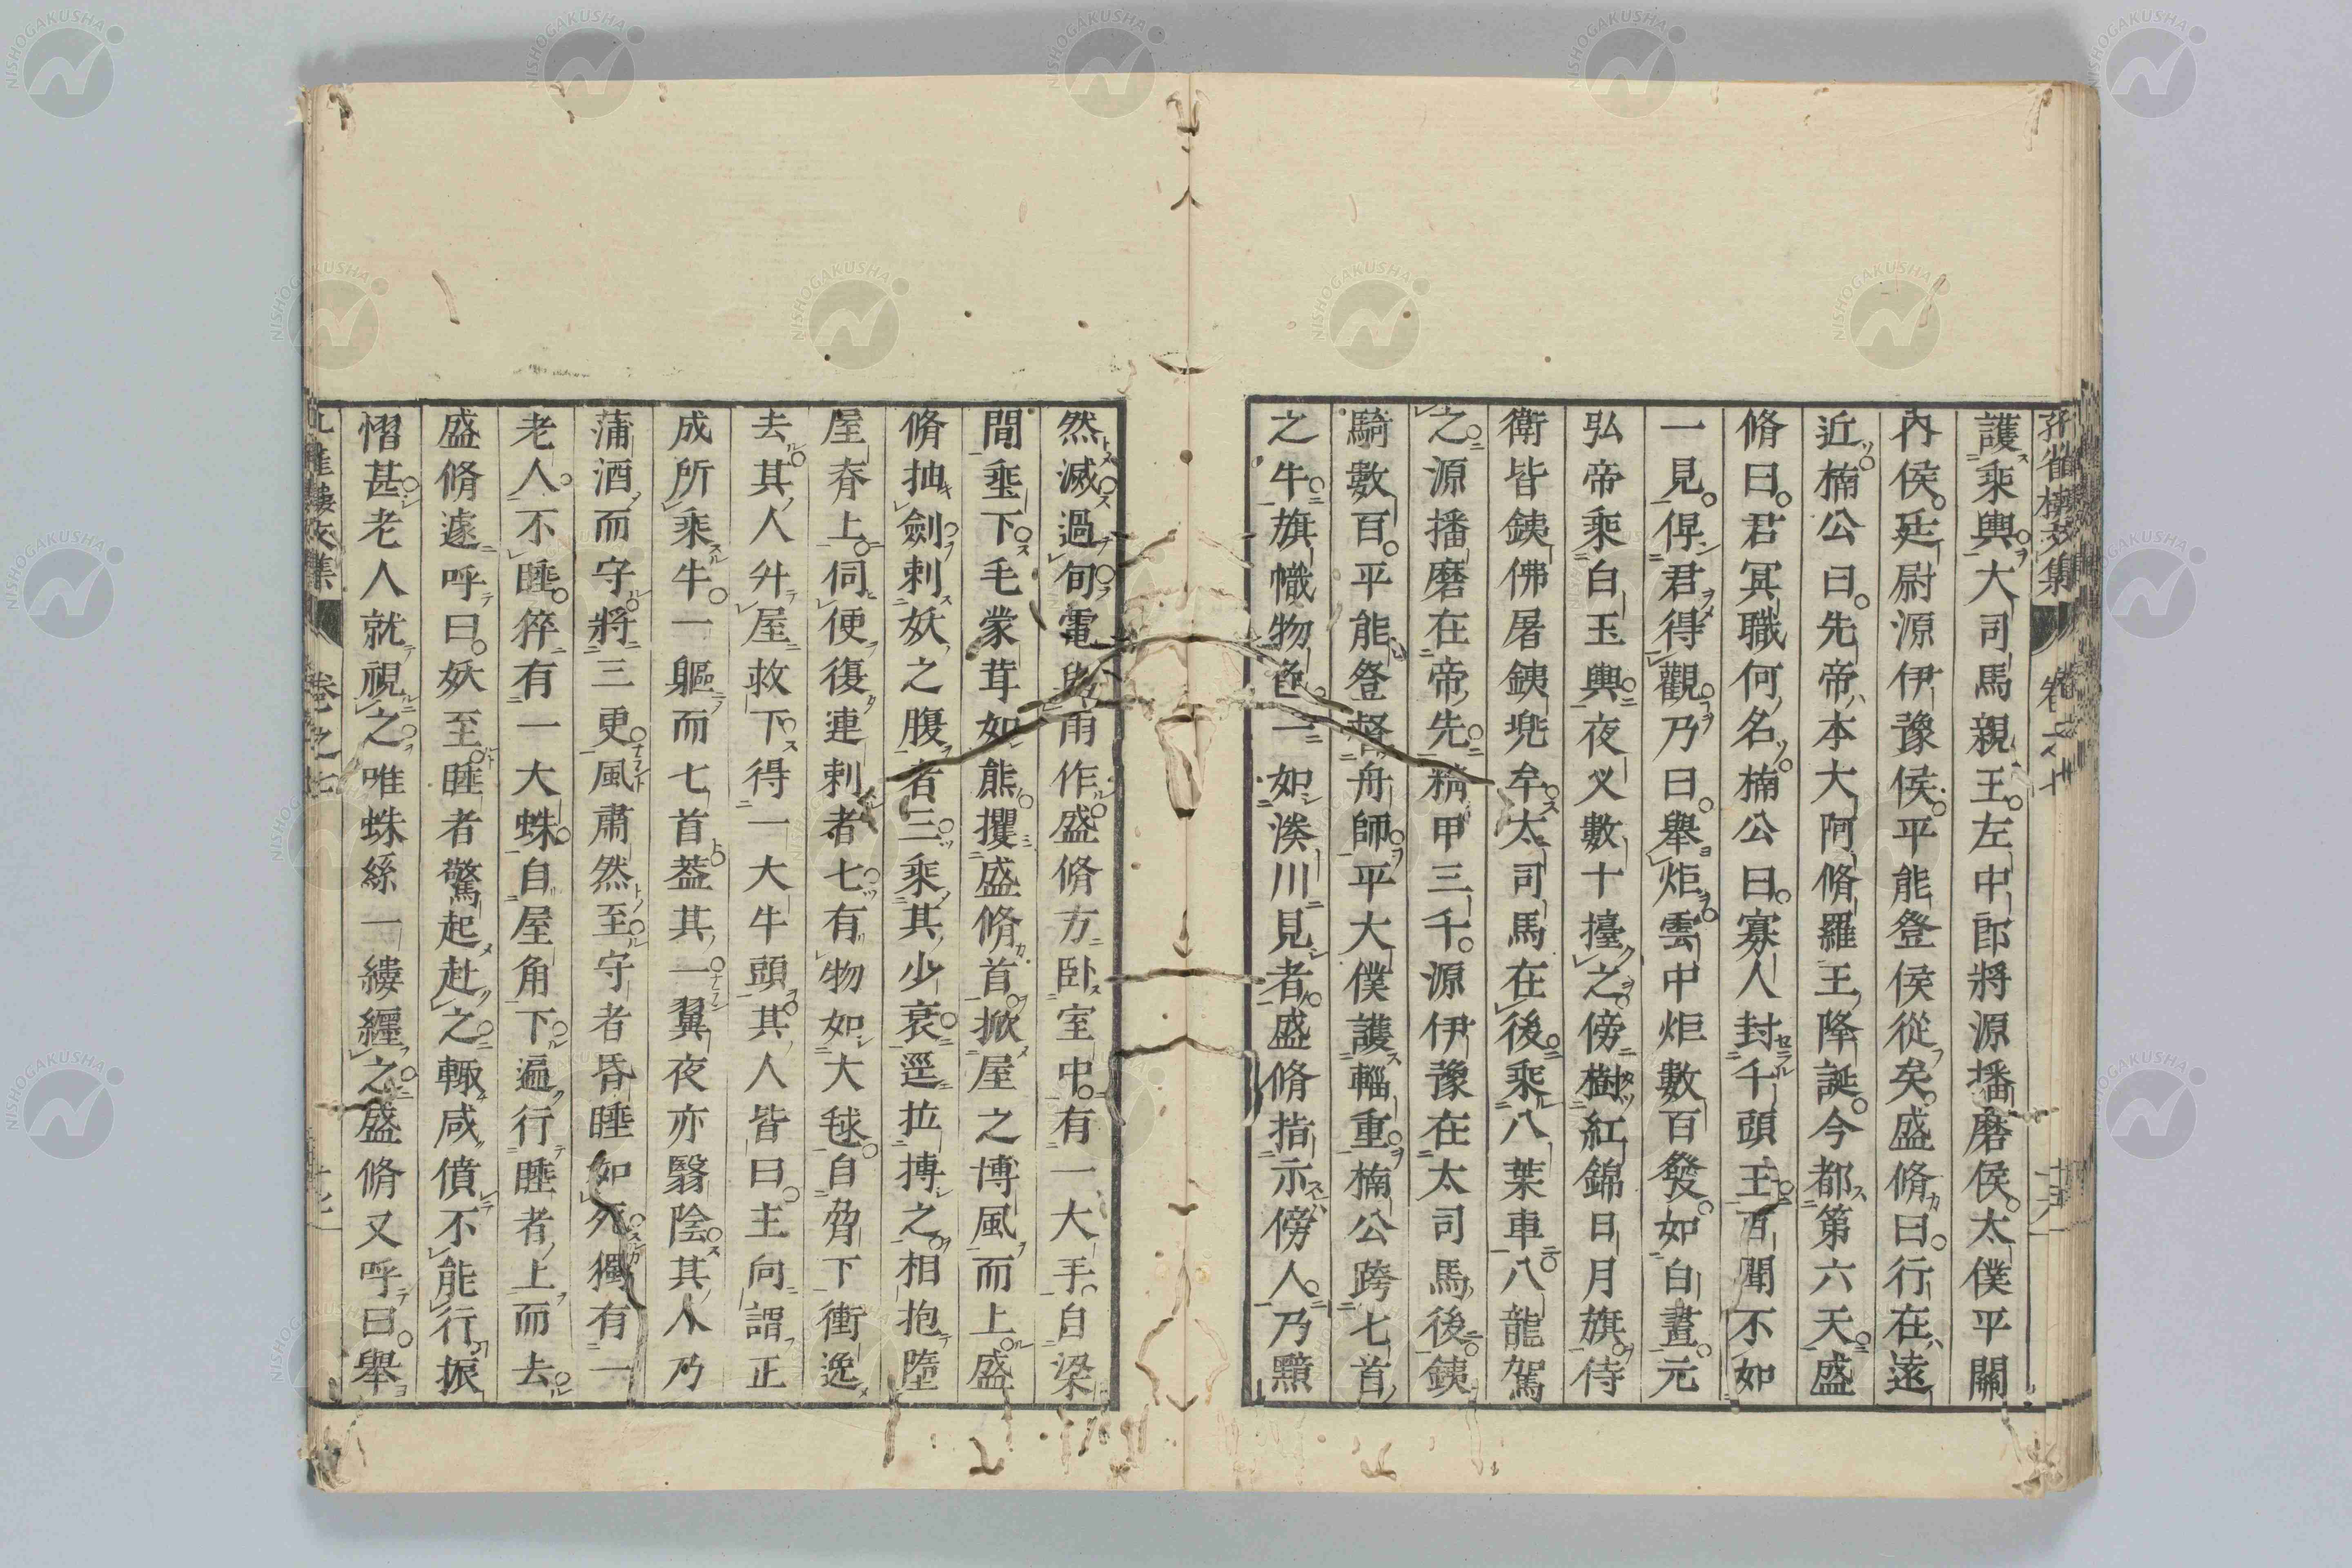 護乘輿大司馬親王左中郎將源播磨侯太僕平關
內侯廷尉源伊豫侯平能登侯從矣盛脩曰行在遠
近楠公曰先帝本大阿脩羅王降誕今都第六天盛
脩曰君冥職何名楠公曰寡人封千頭王百聞不如
一見俾君得觀乃曰舉炬雲中炬數百發如白晝元
弘帝乘白玉輿夜叉數十擡之傍樹紅錦日月旗侍
衛皆銕佛屠銕兜牟太司馬在後乘八葉車八龍駕
之源播磨在帝先精甲三千源伊豫在太司馬後銕
騎數百平能登督舟師平大僕護輜重楠公跨七首
之牛旗幟物色一如湊川見者盛脩指示傍人乃黯
然滅過旬電 雨作盛脩方臥室中有一大手自梁
間埀下毛蒙茸如熊攫盛脩首掀屋之博風而上盛
脩抽劍刺妖之腹者三乘其少衰逕拉搏之相抱墮
屋脊上伺便復連刺者七有物如大毬自脅下衝逸
去其人升屋救下得一大牛頭其人皆曰主向謂正
成所乘牛一軀而七首葢其一翼夜亦翳陰其人乃
蒲酒而守將三更風肅然至守者昏睡如死獨有一
老人不睡猝有一大蛛自屋角下遍行睡者上而去
盛脩遽呼曰妖至睡者驚起赴之輙咸僨不能行振
慴甚老人就視之唯蛛絲一縷纒之盛脩又呼曰舉
卷之七